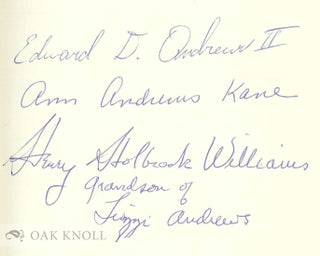 Edward D. Andrews II
Ann Andrews Kane
Henry Holbrook Williams
grandson of
Lizzi Andrews
OAK KNOLL